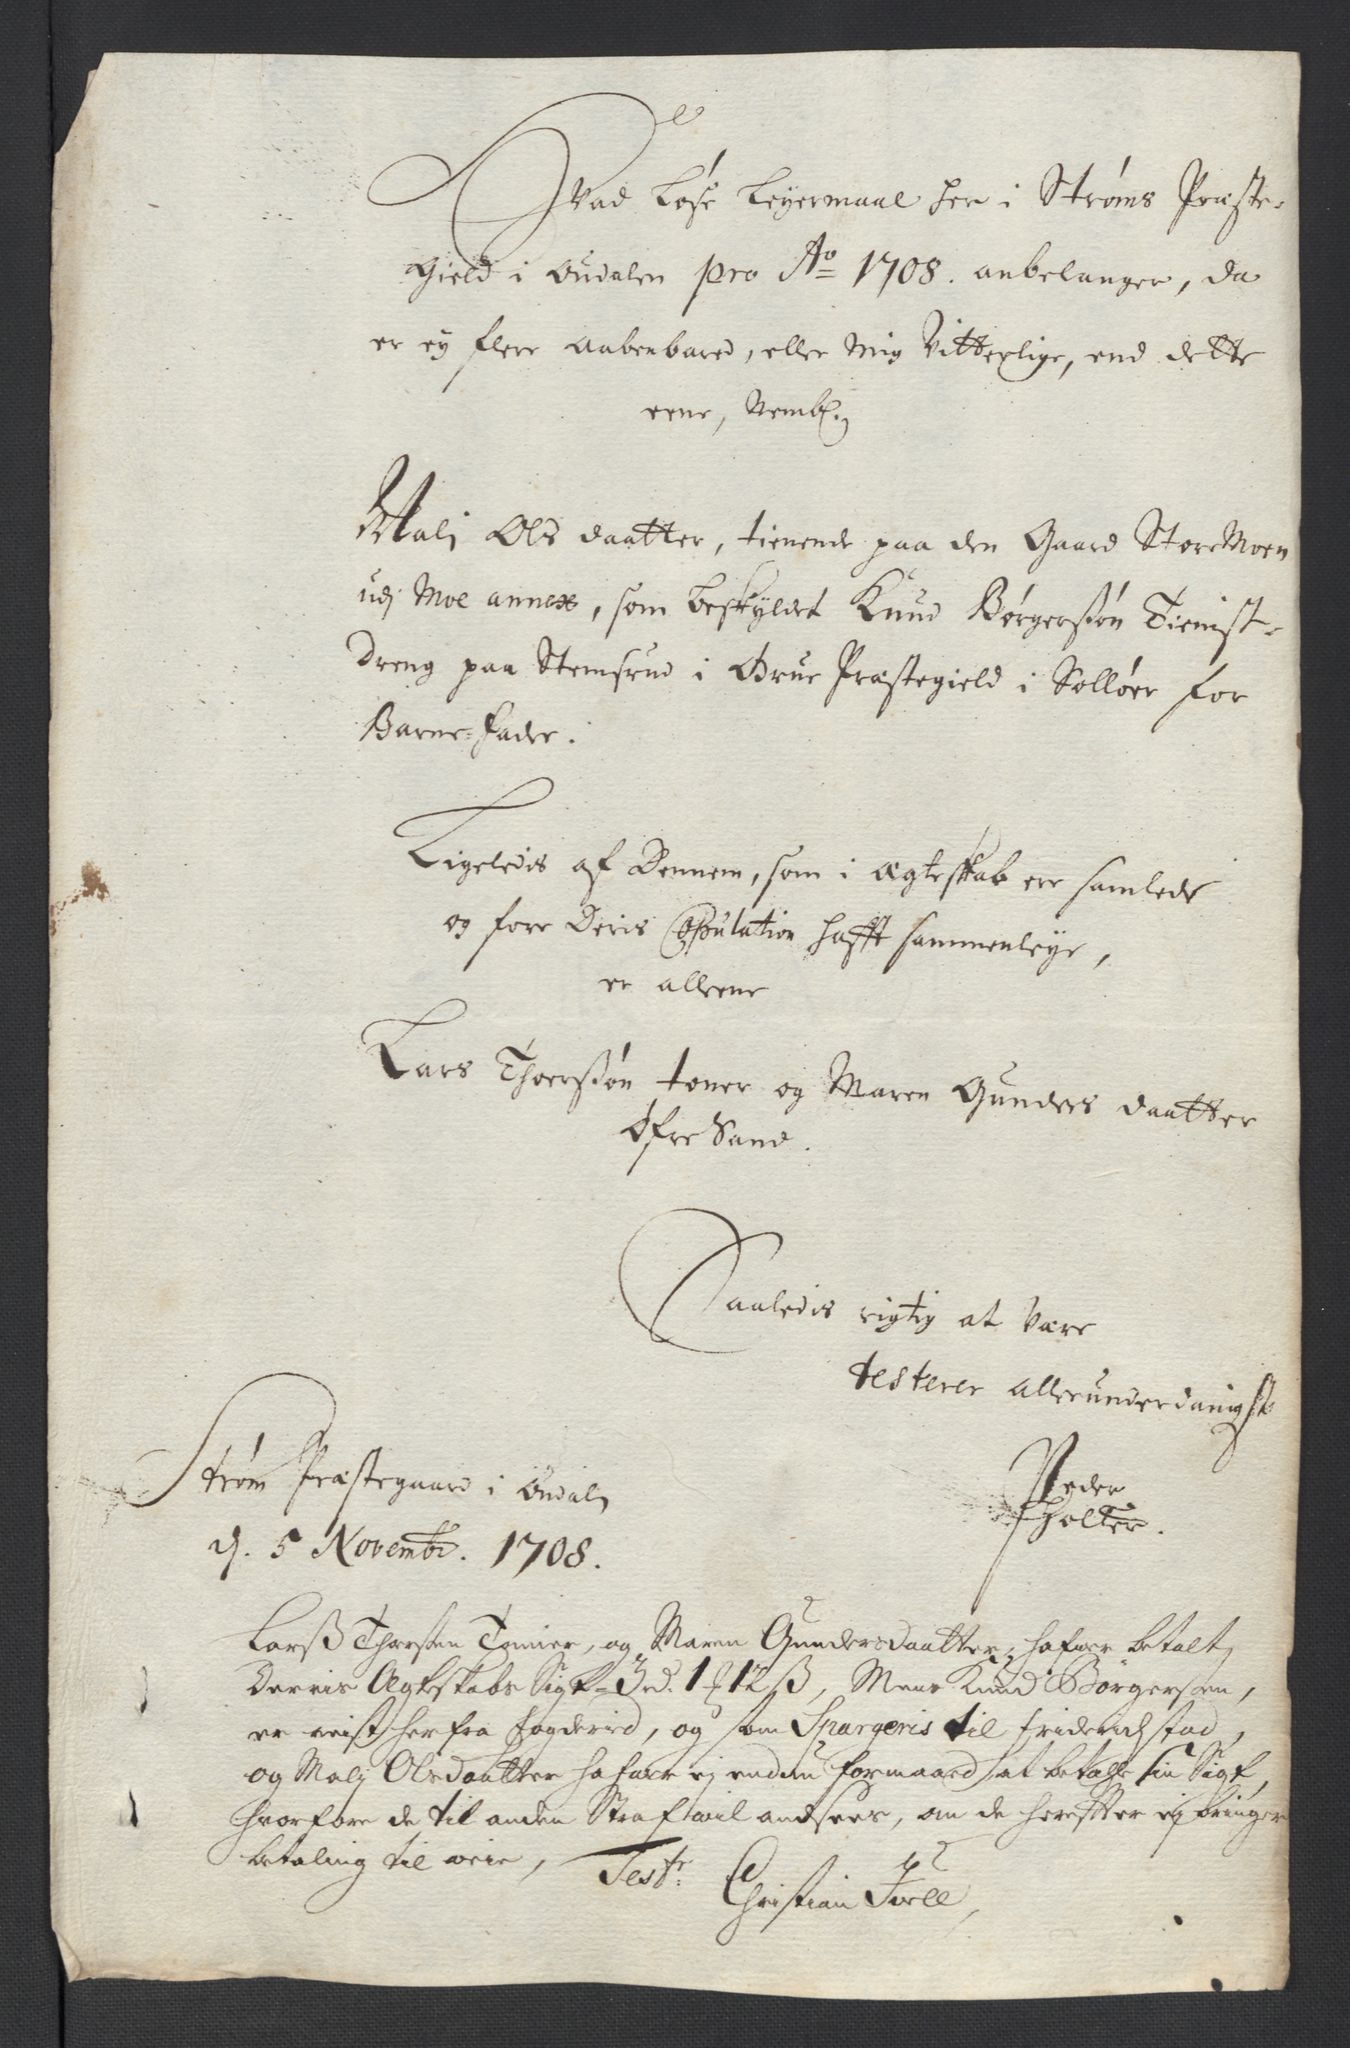 Hvad Løse Leyermaal her i Strøms Præste-
Gield i Oudalen pro Ao 1708. anbelanger, da
er ey flere aabenbared, eller mig Vitterlige, end dette
eene, Nembl.
Mali Ols daatter, tienende paa den Gaard StoreMoen
udj Moe annex, som beskylder Knud Børgersøn Tienist-
dreng paa Stemsrud i Grue Præstegield i Solløer for
Barne-fader.
Ligeledis af dennem, som i Ægteskab ere samlede
og forr deris Copulation hafft sammenleye,
er alleene
Lars Thoersøn toner og Maren Gunders daatter
Øfre Sand.
Saaledis rigtig at være
testerer allerunderdanigst
Strøm Præstegaard i Oudaln
d. 5 Novembr. 1708.
Peder
Holter.
Larss Thorsen Tonner, og Maren Gundersdaatter, hafuer betalt
derris Ægteskabs Sigt 3 rd. 1 12 ß, Mens Knud Börgersen,
er reist herfra fogderied, og som Spargeris til Friderichstad,
og Malj Olsdaatter hafuer ej endnu formaaed at betahle sin Sigt,
hvorfore de til anden Straf wil andsees, om de herefter ej bringer
betaling til veie, Test:
Christian Juell